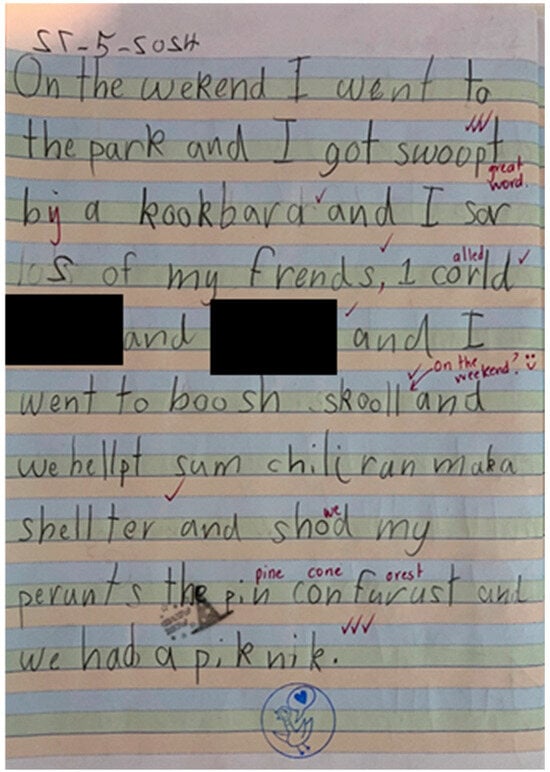 27-5-2024
On the wekend I went to
the park and I got swoopt
great
word.
by a kookbara and I sor
los of my frends, 1 corld
alled
and and I
on the
weekend?
went to boosh skooll and
we hellpt sum chiliran maka
shellter and shod my
we
pine cone orest
perunts the pin con furust and
we had a piknik.